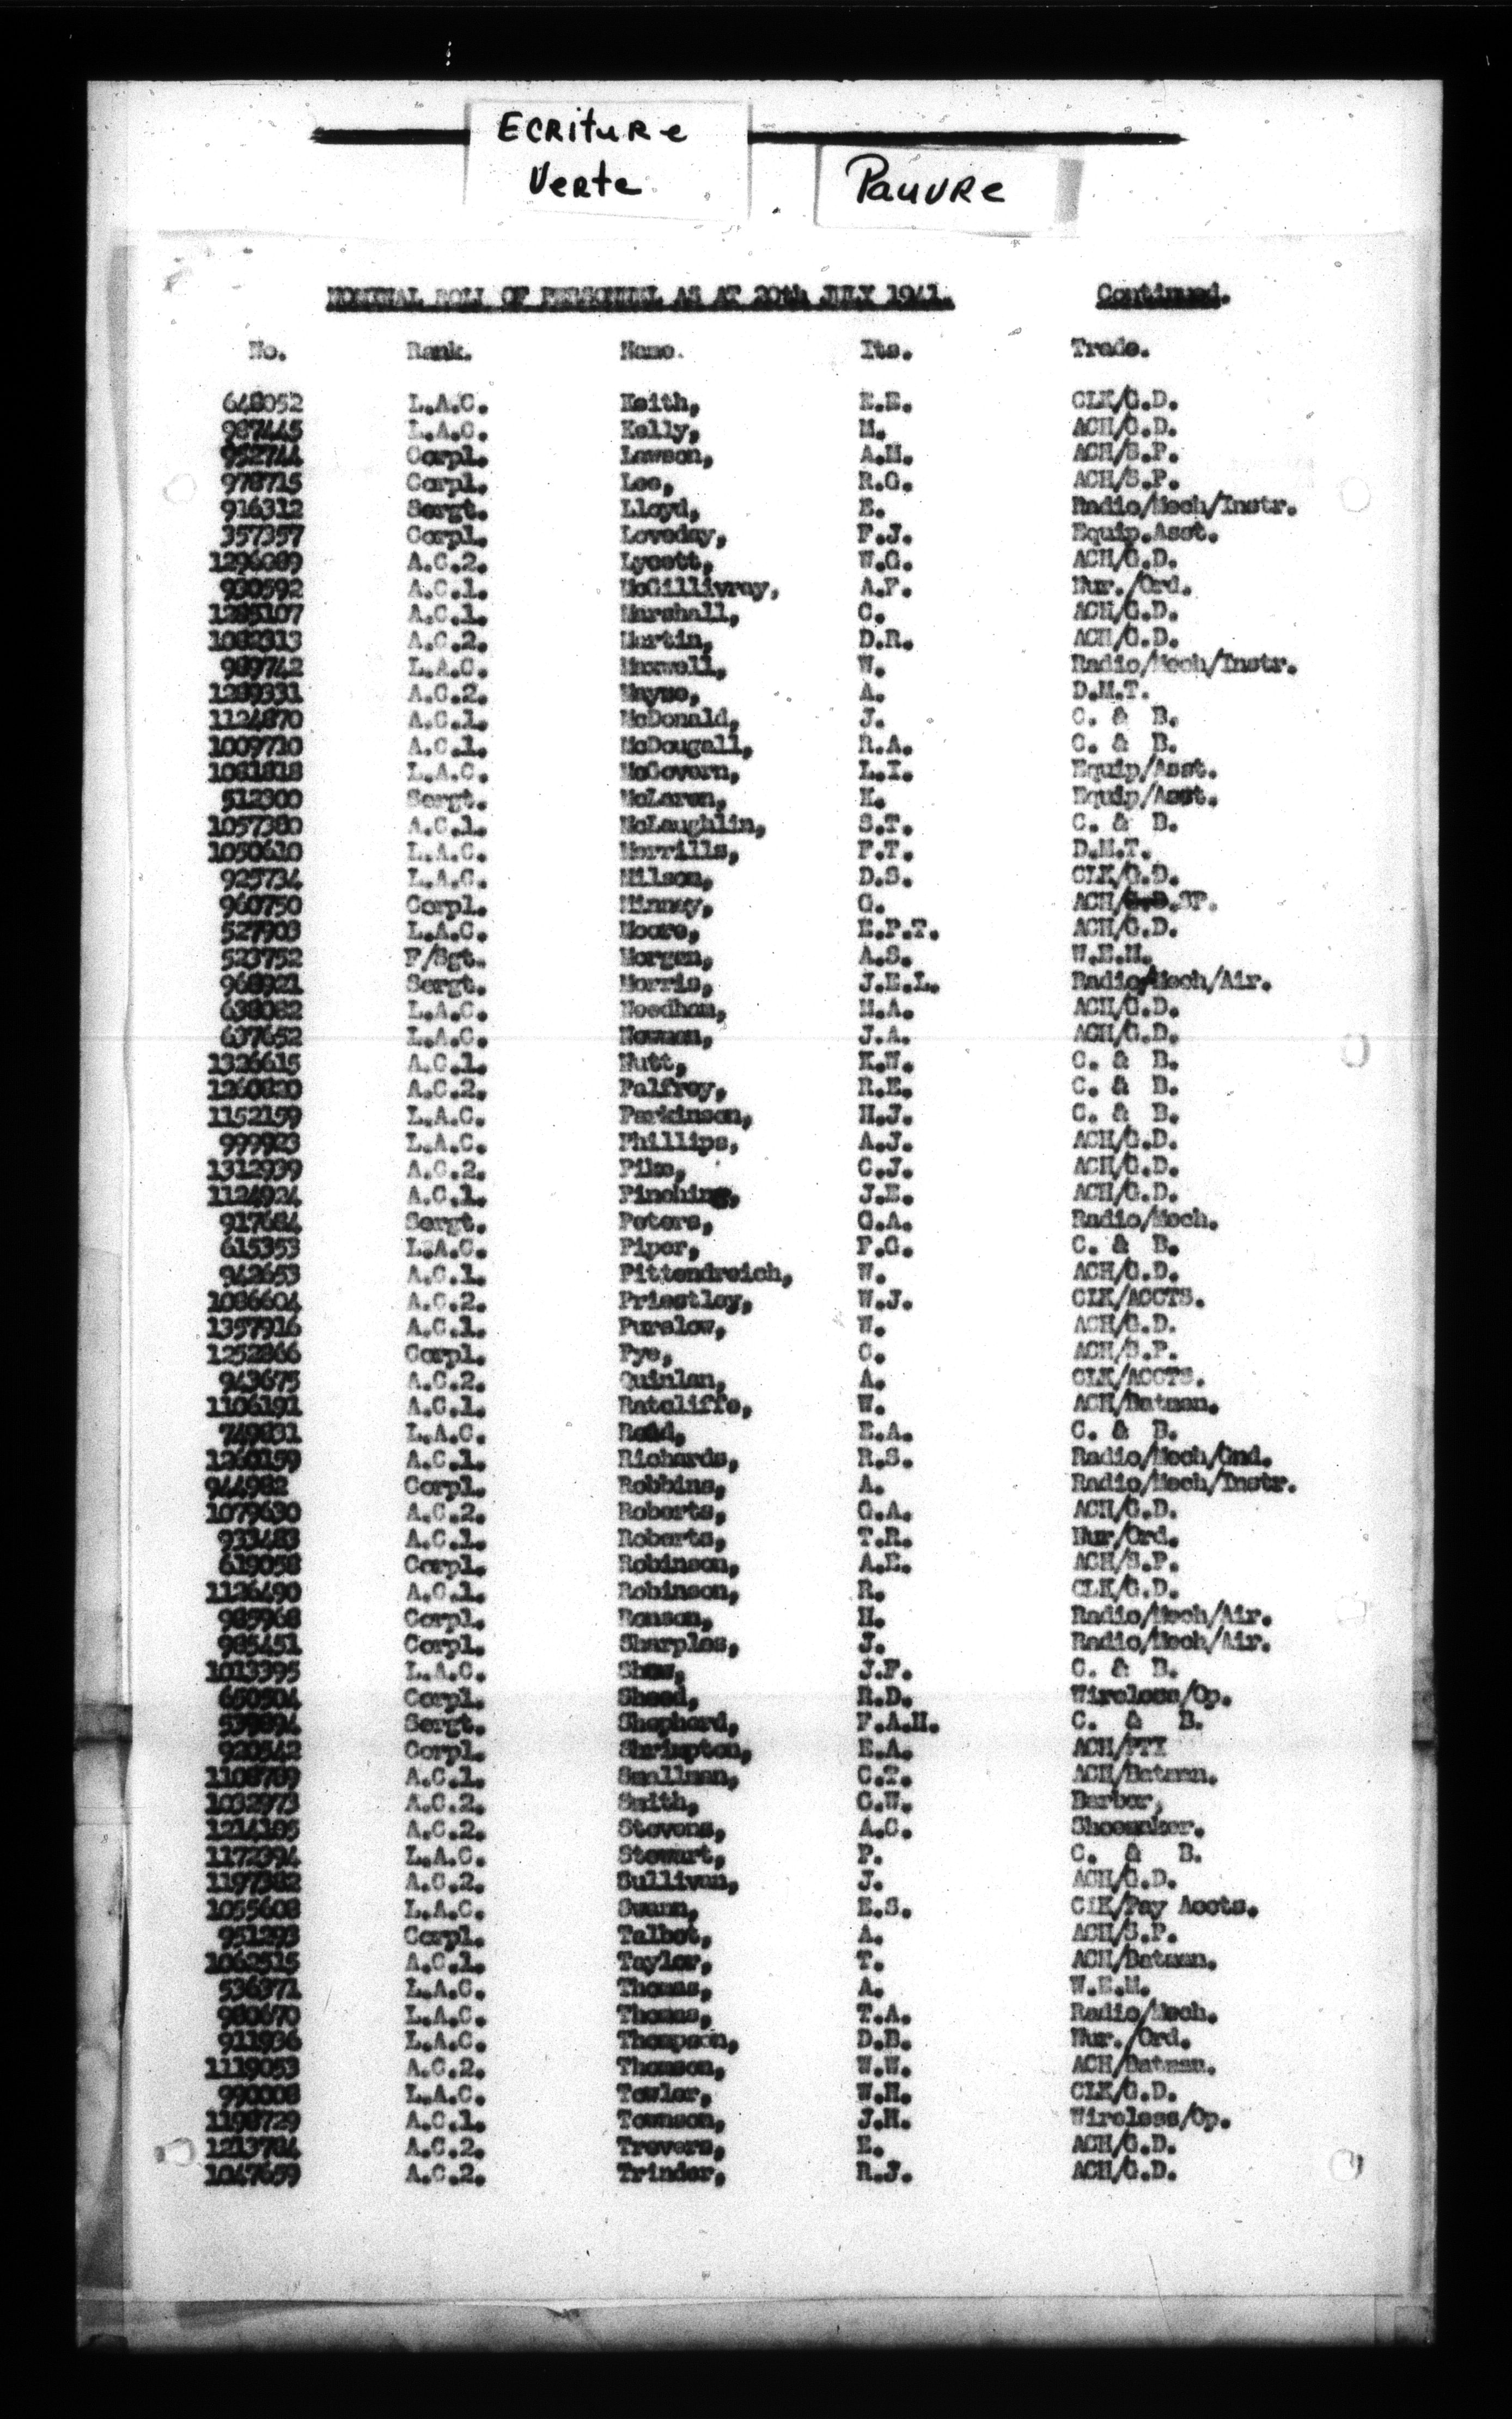 Ecriture
Verte
Pauvre
NOMINAL ROLL OF PERSONNEL AS AT 20th JULY 1941. Continued.
No. Rank. Name. Its. Trade.
648052 L.A.C. Keith, E.E. CLK/G.D.
987445 L.A.C. Kelly, M. ACH/G.D.
952744 Corpl. Lawson, A.M. ACH/S.P.
978715 Corpl. Lee, R.G. ACH/S.P.
916312 Sergt. Lloyd, E. Radio/Mech/Instr.
357357 Corpl. Loveday, F.J. Equip.Asst.
1296089 A.C.2. Lycett, W.G. ACH/G.D.
930592 A.C.1. McGillivray, A.F. Nur./Ord.
1285107 A.C.1. Marshall, C. ACH/G.D.
1082313 A.C.2. Martin, D.R. ACH/G.D.
989742 L.A.C. Maxwell, W. Radio/Mech/Instr.
1289331 A.C.2. Mayne, A. D.M.T.
1124870 A.C.1. McDonald, J. C. & B.
1009710 A.C.1. McDougall, R.A. C. & B.
1081818 L.A.C. McGovern, L.I. Equip/Asst.
512300 Sergt. McLaren, K. Equip/Asst.
1057380 A.C.1. McLaughlin, S.T. C. & B.
1050610 L.A.C. Merrills, F.T. D.M.T.
925734 L.A.C. Milson, D.S. CLK/G.D.
960750 Corpl. Minney, G. ACH/G.D.SP.
527903 L.A.C. Moore, E.P.T. ACH/G.D.
523752 F/Sgt. Morgan, A.S. W.E.M.
968921 Sergt. Morris, J.E.L. Radio/Mech/Air.
638082 L.A.C. Needham, M.A. ACH/G.D.
637652 L.A.C. Newman, J.A. ACH/G.D.
1326615 A.C.1. Nutt, K.W. C. & B.
1260820 A.C.2. Palfrey, R.E. C. & B.
1152159 L.A.C. Parkinson, H.J. C. & B.
999923 L.A.C. Phillips, A.J. ACH/G.D.
1312939 A.C.2. Pike, C.J. ACH/G.D.
1124924 A.C.1. Pinching, J.E. ACH/G.D.
917684 Sergt. Peters, G.A. Radio/Mech.
615353 L.A.C. Piper, F.G. C. & B.
942653 A.C.1. Pittendreich, W. ACH/G.D.
1086604 A.C.2. Priestley, W.J. CLK/ACCTS.
1357916 A.C.1. Purslow, W. ACH/G.D.
1252866 Corpl. Pye, C. ACH/S.P.
943675 A.C.2. Quinlan, A. CLK/ACCTS.
1106191 A.C.1. Ratcliffe, W. ACH/Batman.
749831 L.A.C. Read, E.A. C. & B.
1260159 A.C.1. Richards, R.S. Radio/Mech/Gnd.
944982 Corpl. Robbins, A. Radio/Mech/Instr.
1079630 A.C.2. Roberts, G.A. ACH/G.D.
933483 A.C.1. Roberts, T.R. Nur/Ord.
619058 Corpl. Robinson, A.E. ACH/S.P.
1126490 A.C.1. Robinson, R. CLK/G.D.
985968 Corpl. Ronson, H. Radio/Mech/Air.
985451 Corpl. Sharples, J. Radio/Mech/Air.
1013395 L.A.C. Shaw, J.F. C. & B.
650504 Corpl. Sheed, R.D. Wireless/Op.
539894 Sergt. Shepherd, F.A.H. C. & B.
920542 Corpl. Shrimpton, E.A. ACH/PTI
1108789 A.C.1. Smallman, C.T. ACH/Batman.
1032973 A.C.2. Smith, C.W. Barber,
1214185 A.C.2. Stevens, A.C. Shoemaker.
1172394 L.A.C. Stewart, P. C. & B.
1197382 A.C.2. Sullivan, J. ACH/G.D.
1055608 L.A.C. Swann, E.S. ClK/Pay Accts.
951293 Corpl. Talbot, A. ACH/S.P.
1062515 A.C.1. Taylor, T. ACH/Batman.
536371 L.A.C. Thomas, A. W.E.M.
980670 L.A.C. Thomas, T.A. Radio/Mech.
911936 L.A.C. Thompson, D.B. Nur./Ord.
1119053 A.C.2. Thomson, W.W. ACH/Batman.
990008 L.A.C. Towler, W.H. CLK/G.D.
1198729 A.C.1. Townson, J.H. Wireless/Op.
1213784 A.C.2. Travers, E. ACH/G.D.
1047659 A.C.2. Trinder, R.J. ACH/G.D.